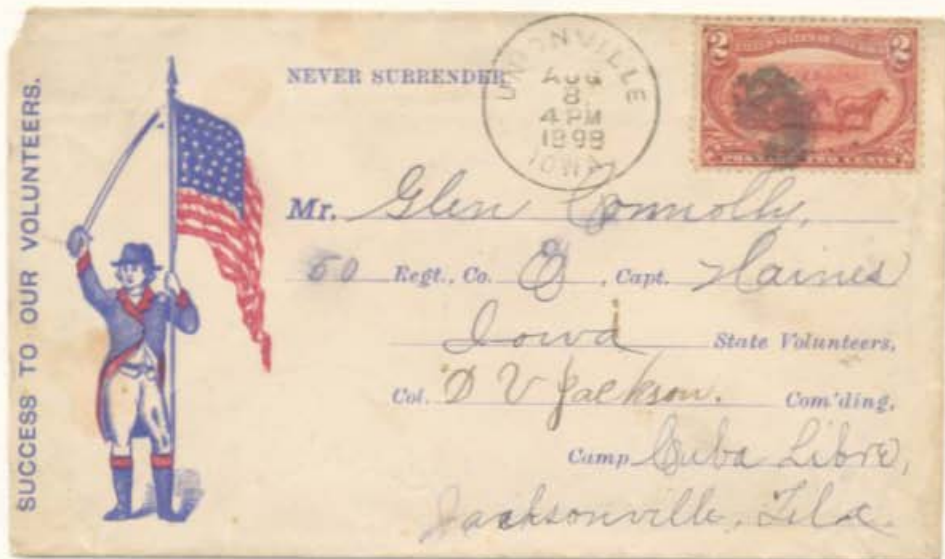 SUCCESS TO OUR VOLUNTEERS.
NEVER SURRENDER
UNIONVILLE
AUG
8
4 PM
1898
IOWA
2 2
Mr. Glen Connolly,
50 Regt., Co. , Capt. Haines
Iowa State Volunteers,
Col. D V Jackson. Com'ding,
Camp Cuba Libre,
Jacksonville, Fla.